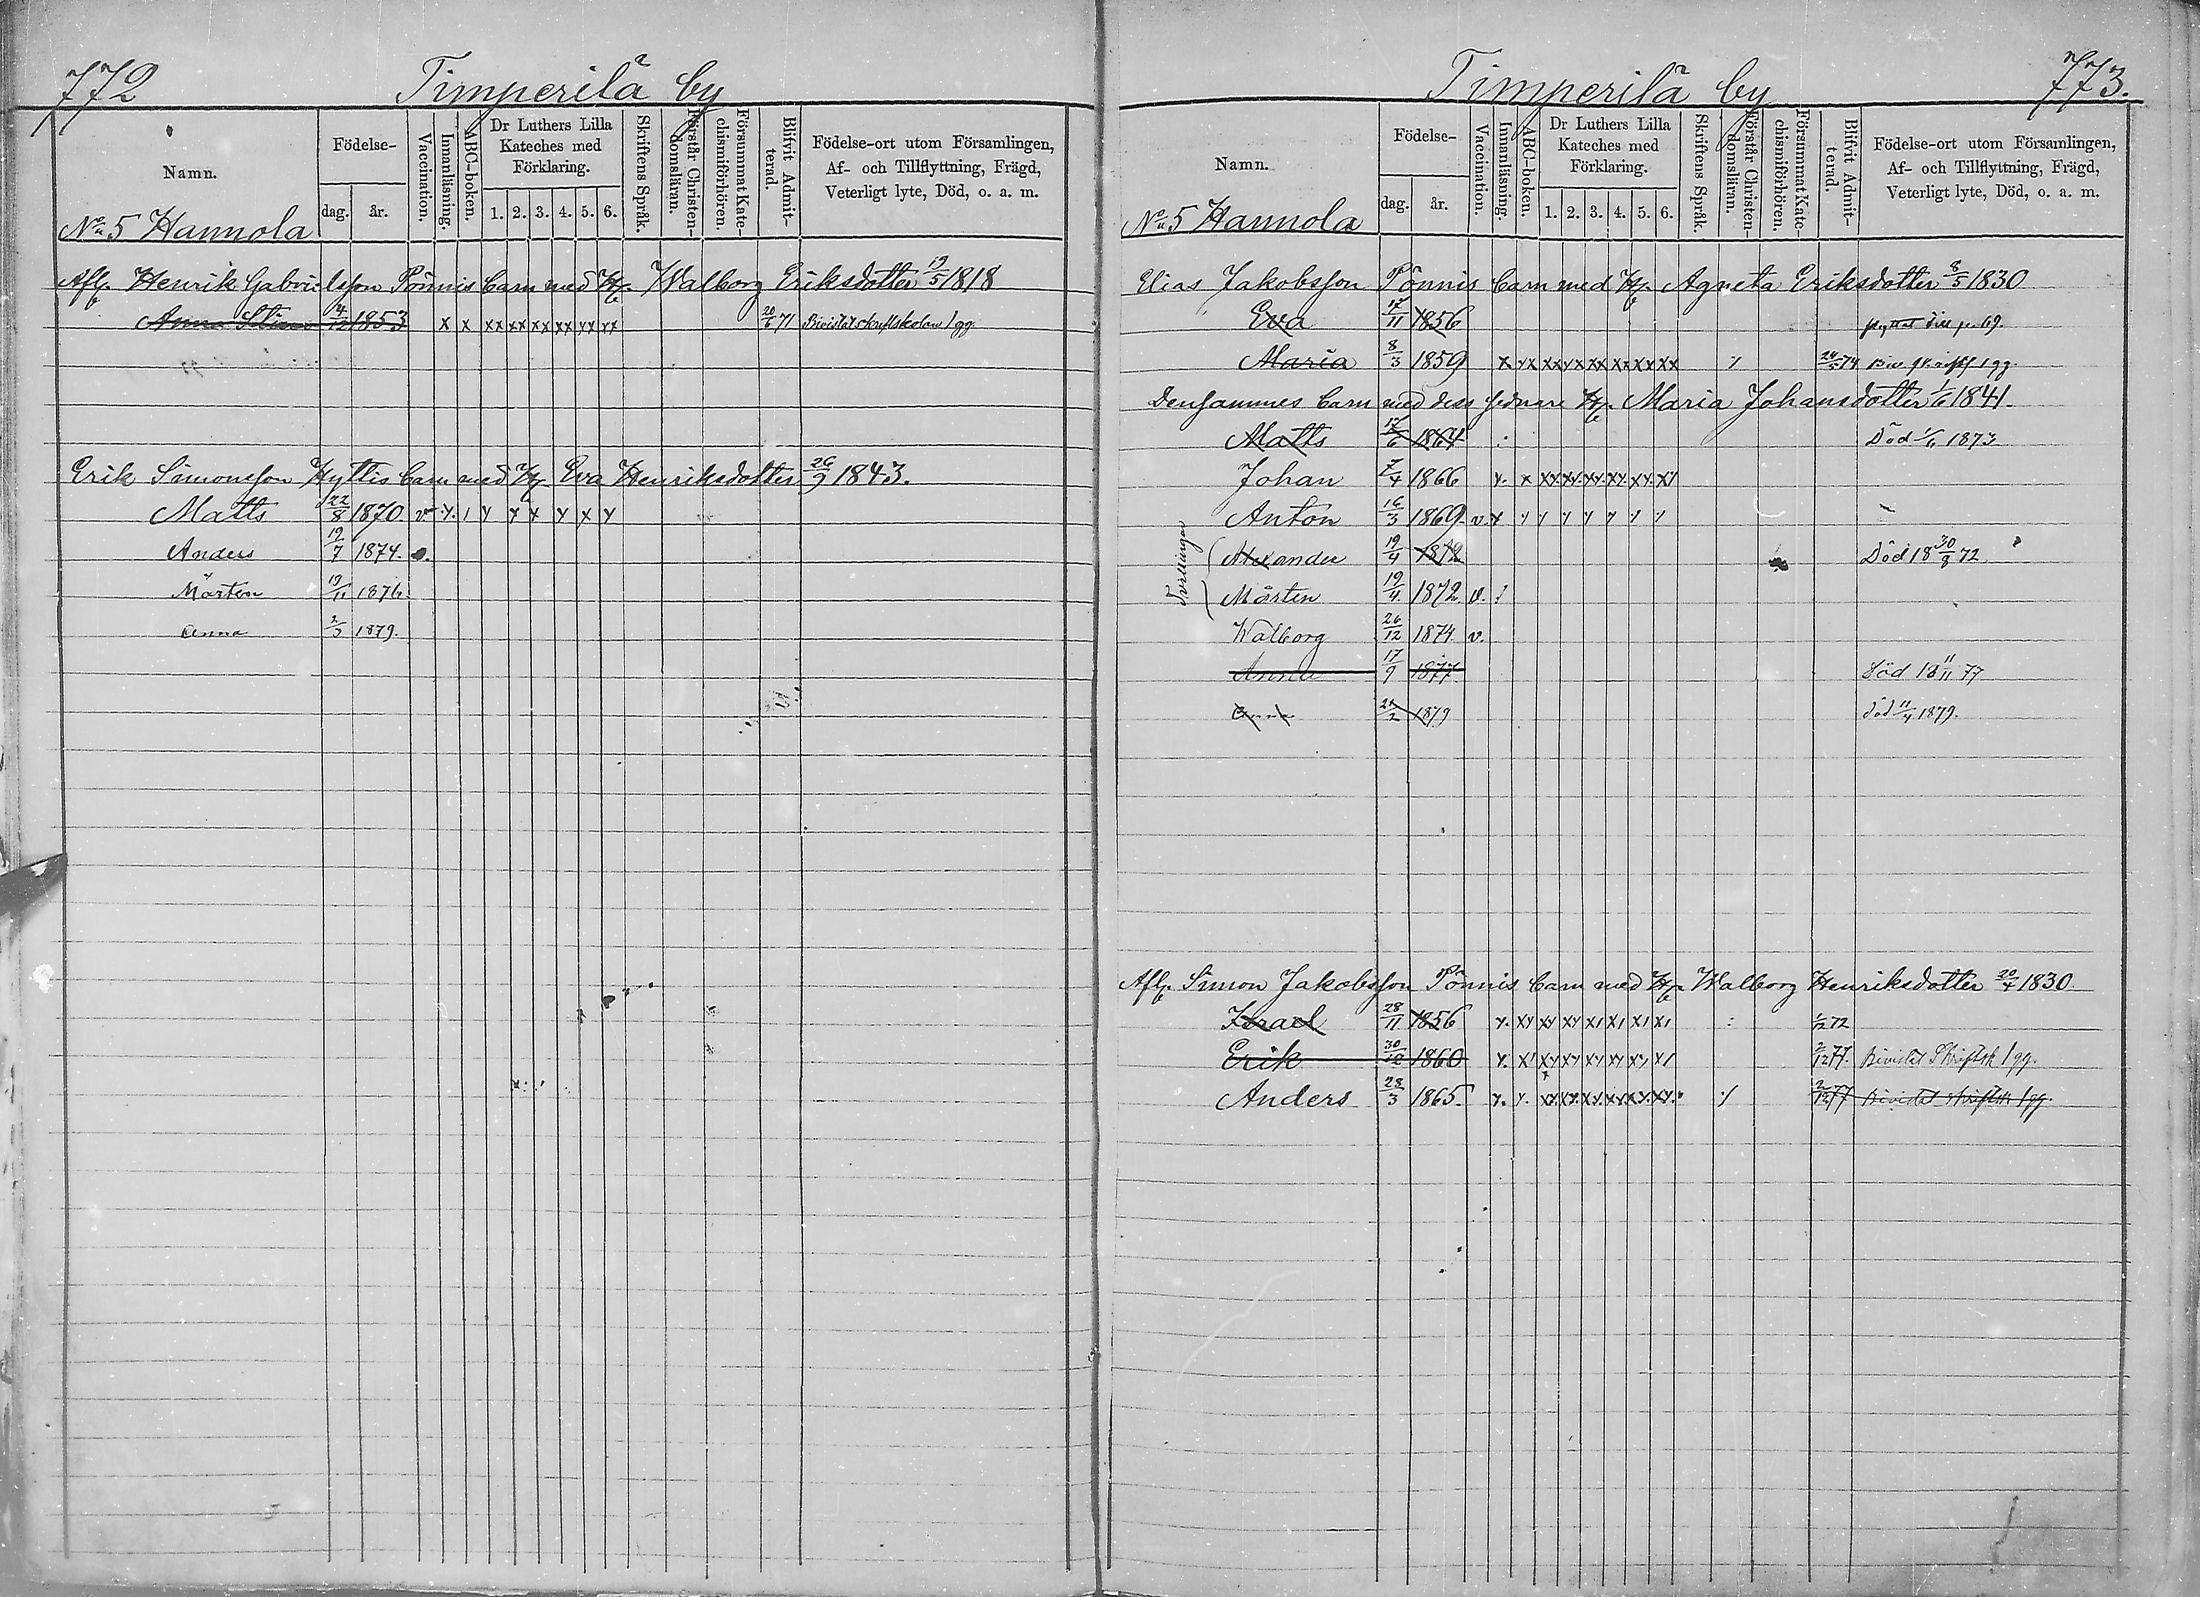 772 Timperilä by
Namn.
Födelse-
dag. år.
Vaccination.
Innanläsning.
ABC-boken.
Dr Luthers Lilla Kateches med Förklaring.
1. 2. 3. 4. 5. 6.
Skriftens Språk.
Förstår Christendomsläran.
Försummat Katechismiförhören.
Blifvit Admitterad.
Födelse-ort utom Församlingen, Af- och Tillflyttning, Frägd, Veterligt lyte, Död, o. a. m.
No 5 Hannola
Afl. Henrik Gabrielsson Pönnis barn med H. Walborg Eriksdotter 19/5 1818
Anna Stina 4/12 1853 x x xx xx xx xx xx xx 20/6 71 Bivistat skriftskolan 1 gg.
Erik Simonsson Hyttis barn med H. Eva Henriksdotter 26/9 1843.
Matts 22/8 1870. v
Anders 19/7 1874.
Mårten 19/11 1876.
Anna 2/3 1879.
Timperilä by 773.
Namn.
Födelse-
dag. år.
Vaccination.
Innanläsning.
ABC-boken.
Dr Luthers Lilla Kateches med Förklaring.
1. 2. 3. 4. 5. 6.
Skriftens Språk.
Förstår Christendomsläran.
Försummat Katechismiförhören.
Blifvit Admitterad.
Födelse-ort utom Församlingen, Af- och Tillflyttning, Frägd, Veterligt lyte, Död, o. a. m.
No 5 Hannola
Elias Jakobsson Pönnis barn med H. Agneta Eriksdotter 8/5 1830
Eva 17/11 1856 flyttat till p. 69.
Maria 8/3 1859 24/5 74 1 gg.
Densammes barn med dess sednare H. Maria Johansdotter 1/6 1841.
Matts 17/6 1864 Död 1873
Johan 7/4 1866
Anton 16/3 1869. v.
Tvillingar
Alexander 19/4 1872 Död 18 30/8 72
Mårten 19/4 1872. v.
Walborg 26/12 1874 v.
Anna 17/9 1877. Död 18 11/11 77
Anna 1879 död 11/4 1879.
Afl. Simon Jakobsson Pönnis barn med H. Walborg Henriksdotter 20/4 1830.
Israel 28/11 1856 1/12 72
Erik 30/12 1860 2/12 77. Bivistat Skriftsk 1 gg.
Anders 28/3 1865. 2/12 77 Bivistat skriftsk 1 gg.